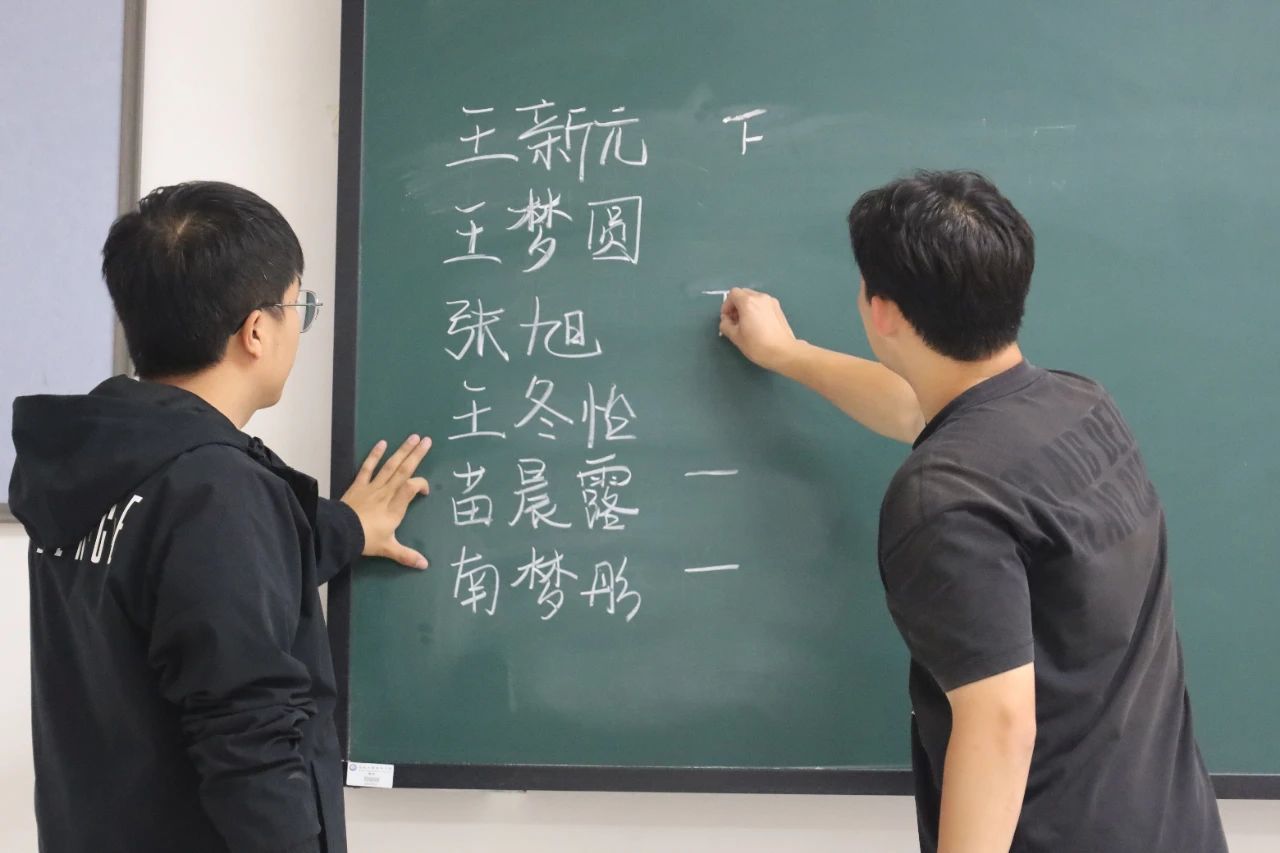 王新元 下
王梦圆
张旭
王冬怡
苗晨露 一
南梦彤 一